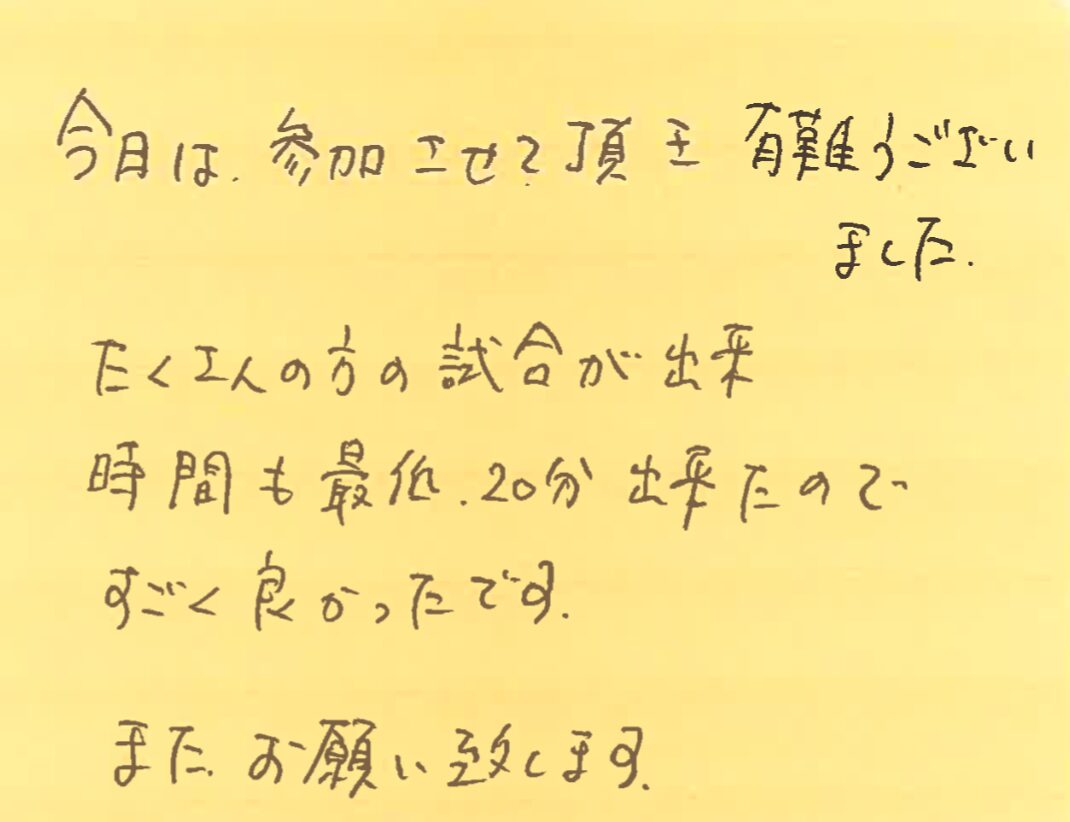 今日は、参加させて頂き有難うござい
ました。
たくさんの方の試合が出来
時間も最低、20分出来たので
すごく良かったです。
また、お願い致します。